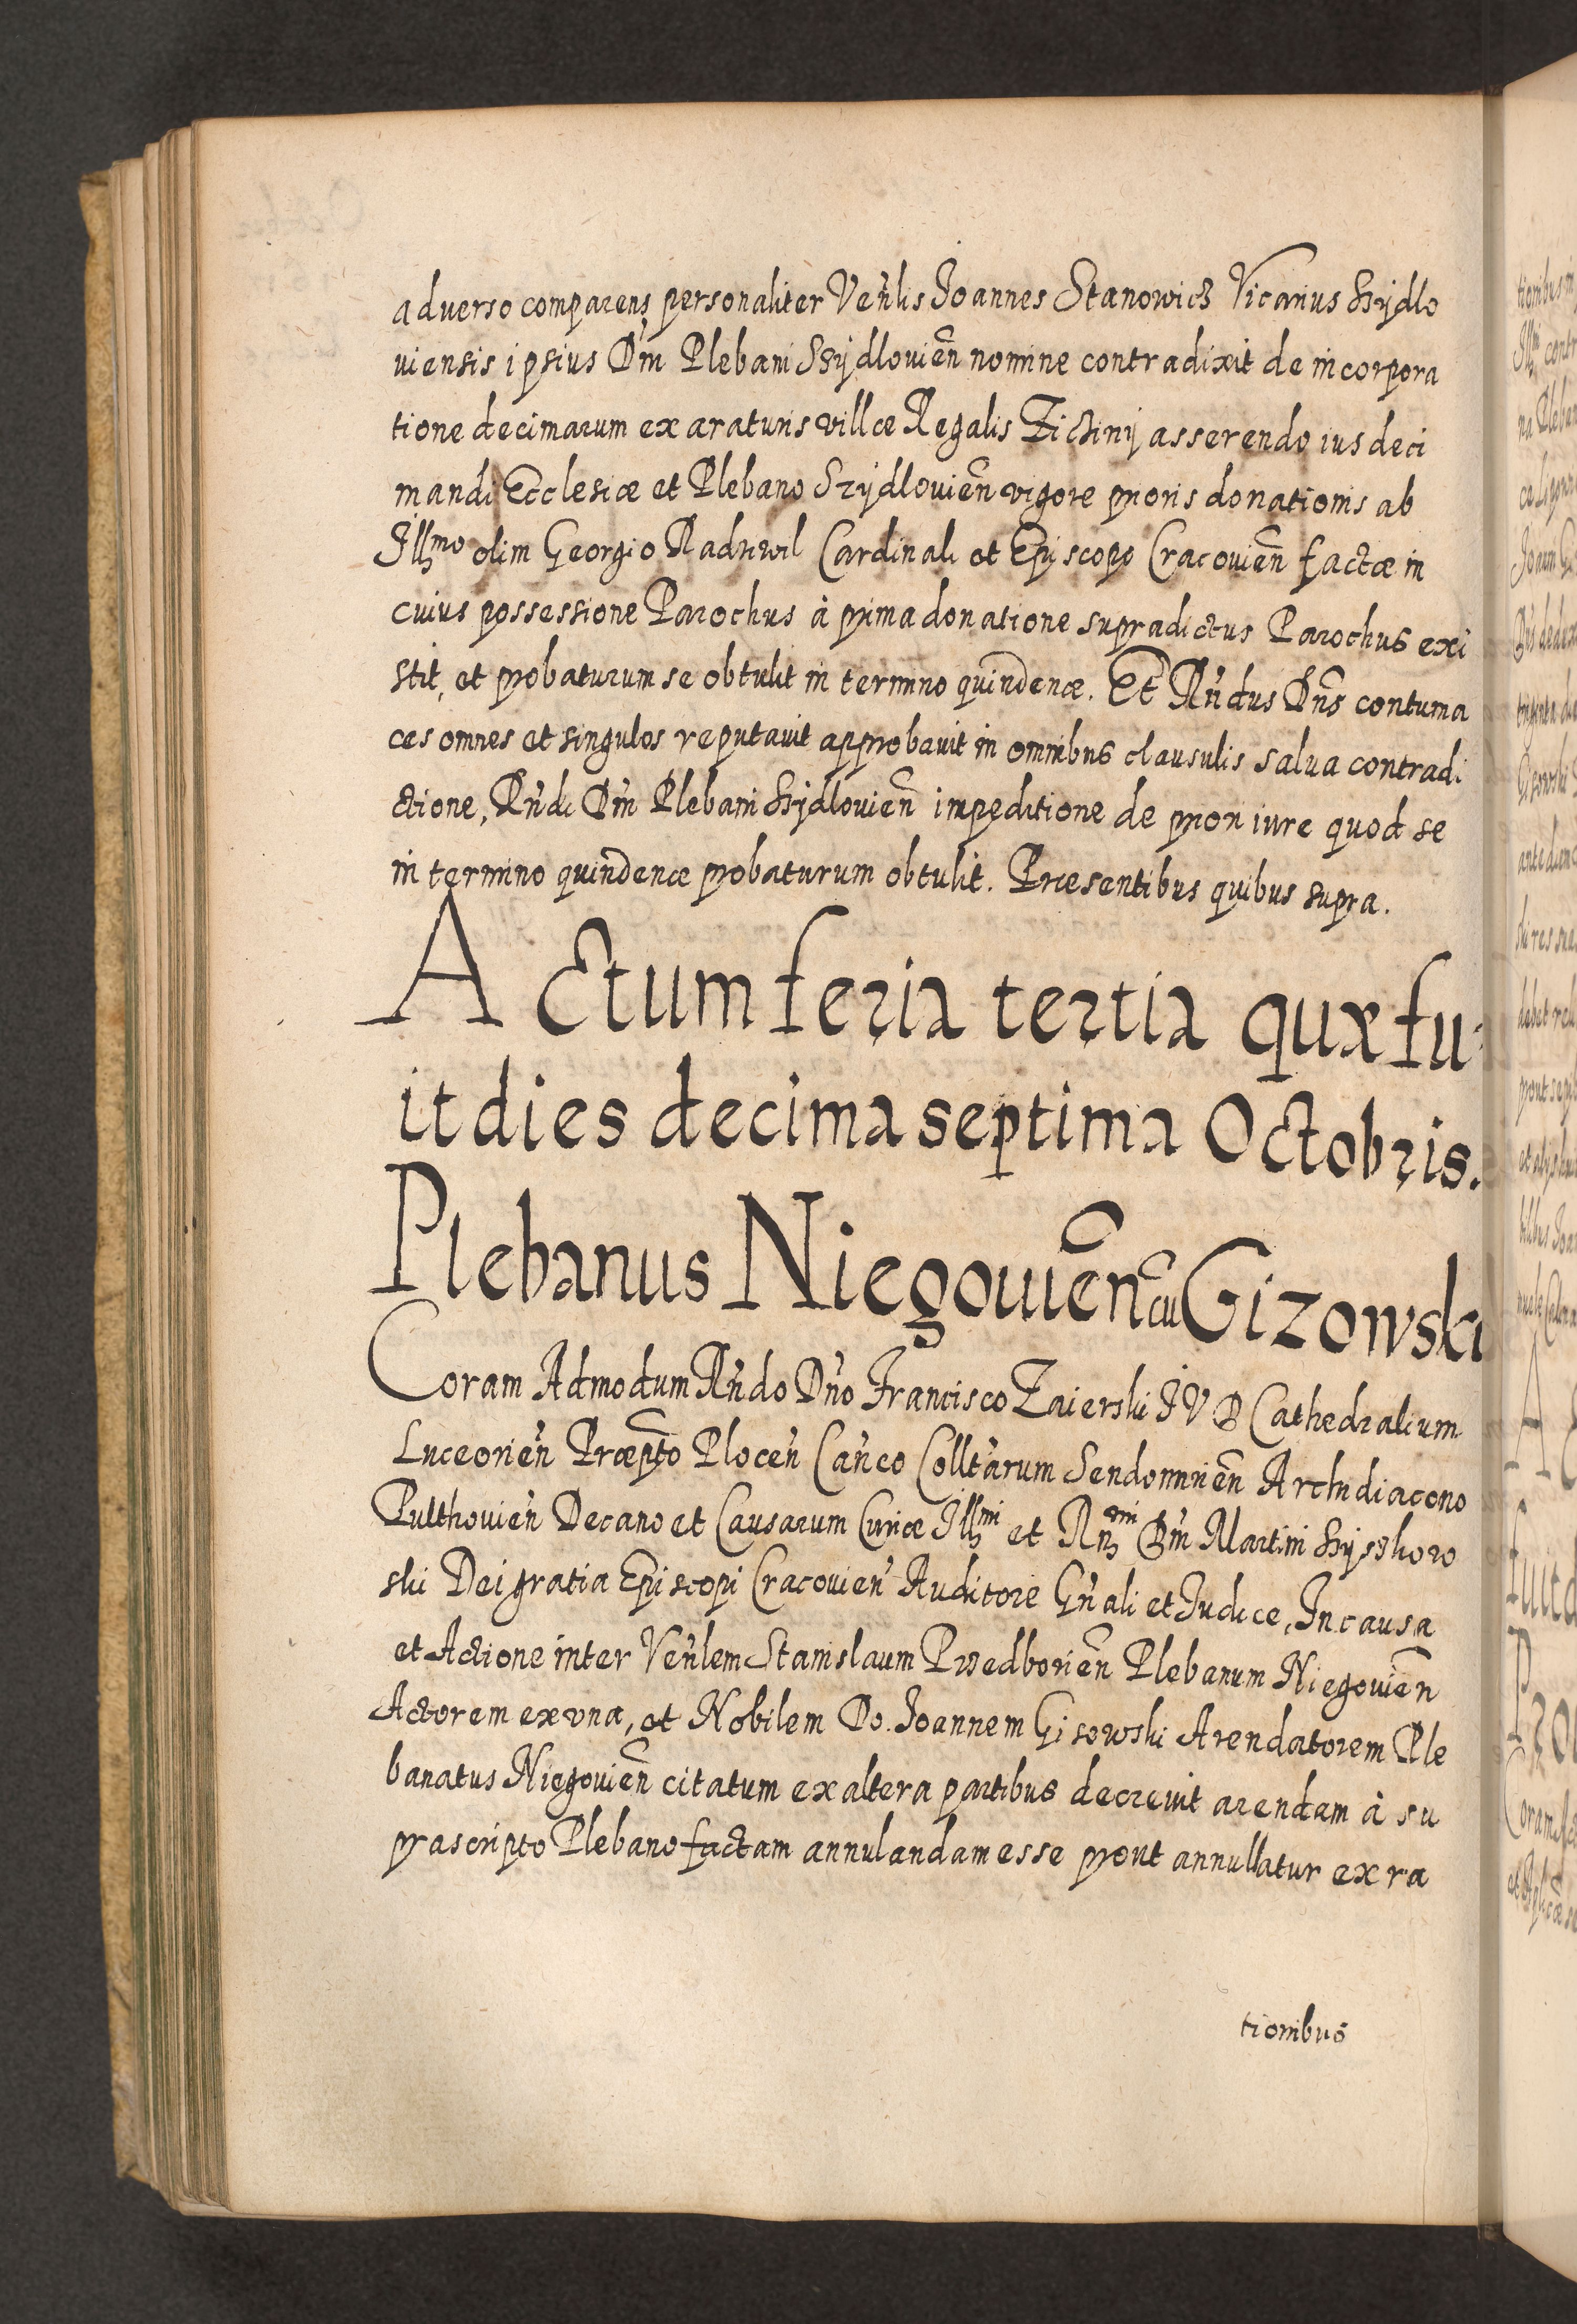 adverso comparens personaliter Ven̄lis Joannes Stanowicz Vicarius Szÿdlo
uiensis ipsius Dn̄i Plebani Szÿdlouien̄ nomine contradixit de incorpora
tione decimarum ex araturis villæ Regalis asserendo ius deci
mandi Ecclesiæ et Plebano Szÿdlouien̄ vigore prioris donationis ab
Illmo olim Georgio Radziwil Cardinali et Episcopo Cracouien̄ factæ in
cuius possessione Parochus à prima donatione supradictus Parochus exi
stit, et probaturum se obtulit in termino quindenæ. Et Rn̄dus Dn̄s contuma
ces omnes et singulos reputauit approbauit in omnibus clausulis salua contradi
ctione, Rn̄di Dn̄i Plebani Szÿdlouien̄ impeditione de priori iure quod se
in termino quindenæ probaturum obtulit. Præsentibus quibus supra.
Actum feria tertia quæ fu-
it dies decima septima Octobris.
Plebanus Niegouien̄ cū Gizowski
Coram Admodum Rn̄do Dn̄o Francisco Zaierski I V D Cathedralium
Luceorien̄ Præpto Plocen̄ Can̄co Collt̄arum Sendomirien̄ Archidiacono
Pulthouien̄ Decano et Causarum Curiæ Illmi et Rn̄mi Dn̄i Martini Szÿszkow
ski Dei gratia Episcopi Cracouien̄ Auditore Gn̄ali et Judice, In causa
et Actione inter Ven̄lem Stanislaum Przedborien̄ Plebanum Niegouien̄
Actorem ex vna, et Nobilem Do. Joannem Gisowski Arendatorem Ple
banatus Niegouien̄ citatum ex altera partibus decreuit arendam à su
prascripto Plebano factam annulandam esse prout annullatur ex ra
tionibus